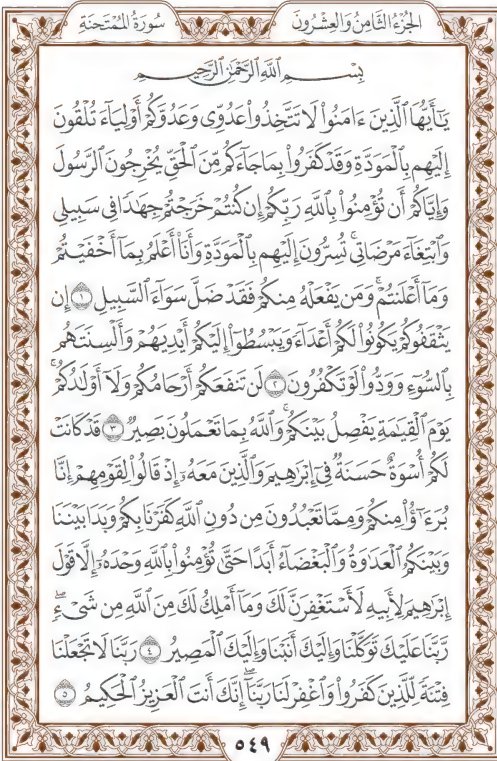 الجُزْءُ الثَّامِنُ وَالعِشْرُونَ سُورَةُ المُمْتَحنَة
بِسْمِ ٱللَّهِ ٱلرَّحْمَٰنِ ٱلرَّحِيمِ
يَٰٓأَيُّهَا ٱلَّذِينَ ءَامَنُواْ لَا تَتَّخِذُواْ عَدُوِّى وَعَدُوَّكُمْ أَوْلِيَآءَ تُلْقُونَ
إِلَيْهِم بِٱلْمَوَدَّةِ وَقَدْ كَفَرُواْ بِمَا جَآءَكُم مِّنَ ٱلْحَقِّ يُخْرِجُونَ ٱلرَّسُولَ
وَإِيَّاكُمْ أَن تُؤْمِنُواْ بِٱللَّهِ رَبِّكُمْ إِن كُنتُمْ خَرَجْتُمْ جِهَٰدًا فِى سَبِيلِى
وَٱبْتِغَآءَ مَرْضَاتِى ۚ تُسِرُّونَ إِلَيْهِم بِٱلْمَوَدَّةِ وَأَنَا۠ أَعْلَمُ بِمَآ أَخْفَيْتُمْ
وَمَآ أَعْلَنتُمْ ۚ وَمَن يَفْعَلْهُ مِنكُمْ فَقَدْ ضَلَّ سَوَآءَ ٱلسَّبِيلِ ١ إِن
يَثْقَفُوكُمْ يَكُونُواْ لَكُمْ أَعْدَآءً وَيَبْسُطُوٓاْ إِلَيْكُمْ أَيْدِيَهُمْ وَأَلْسِنَتَهُم
بِٱلسُّوٓءِ وَوَدُّواْ لَوْ تَكْفُرُونَ ٢ لَن تَنفَعَكُمْ أَرْحَامُكُمْ وَلَآ أَوْلَٰدُكُمْ ۚ
يَوْمَ ٱلْقِيَٰمَةِ يَفْصِلُ بَيْنَكُمْ ۚ وَٱللَّهُ بِمَا تَعْمَلُونَ بَصِيرٌ ٣ قَدْ كَانَتْ
لَكُمْ أُسْوَةٌ حَسَنَةٌ فِىٓ إِبْرَٰهِيمَ وَٱلَّذِينَ مَعَهُۥٓ إِذْ قَالُواْ لِقَوْمِهِمْ إِنَّا
بُرَءَٰٓؤُاْ مِنكُمْ وَمِمَّا تَعْبُدُونَ مِن دُونِ ٱللَّهِ كَفَرْنَا بِكُمْ وَبَدَا بَيْنَنَا
وَبَيْنَكُمُ ٱلْعَدَٰوَةُ وَٱلْبَغْضَآءُ أَبَدًا حَتَّىٰ تُؤْمِنُواْ بِٱللَّهِ وَحْدَهُۥٓ إِلَّا قَوْلَ
إِبْرَٰهِيمَ لِأَبِيهِ لَأَسْتَغْفِرَنَّ لَكَ وَمَآ أَمْلِكُ لَكَ مِنَ ٱللَّهِ مِن شَىْءٍ ۖ
رَّبَّنَا عَلَيْكَ تَوَكَّلْنَا وَإِلَيْكَ أَنَبْنَا وَإِلَيْكَ ٱلْمَصِيرُ ٤ رَبَّنَا لَا تَجْعَلْنَا
فِتْنَةً لِّلَّذِينَ كَفَرُواْ وَٱغْفِرْ لَنَا رَبَّنَآ ۖ إِنَّكَ أَنتَ ٱلْعَزِيزُ ٱلْحَكِيمُ ٥
٥٤٩